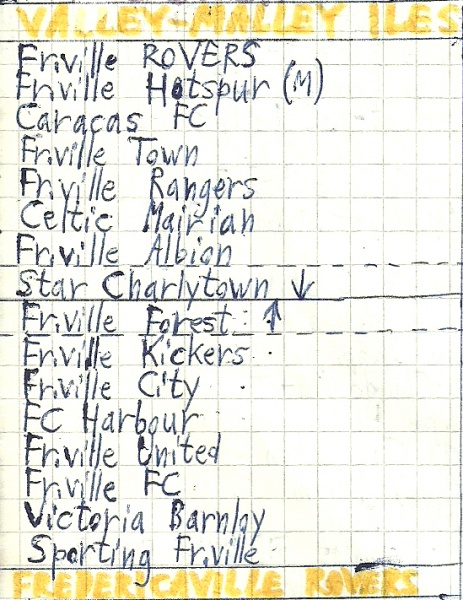 VALLEY-MALLEY ILES
Fr.ville ROVERS
Fr.ville Hotspur (M)
Caracas FC
Fr.ville Town
Fr.ville Rangers
Celtic Mairian
Fr.ville Albion
Star Charlytown ↓
Fr.ville Forest ↑
Fr.ville Kickers
Fr.ville City
FC Harbour
Fr.ville United
Fr.ville FC
Victoria Barnley
Sporting Fr.ville
FREDERICAVILLE ROVERS